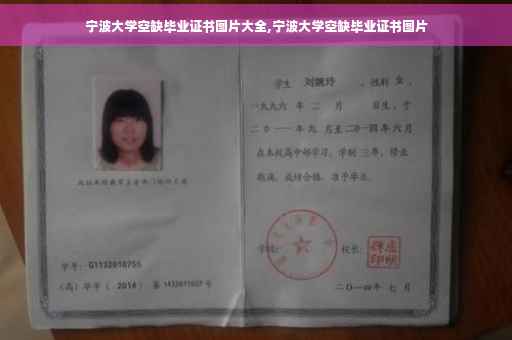 宁波大学空缺毕业证书图片大全,宁波大学空缺毕业证书图片
学生 刘婉玲 ,性别 女 ,
一九九六 年 二 月 日生,于
二〇一一 年 九 月至 二〇一四 年 六 月
在本校高中部学习,学制 三 年,修业
期满,成绩合格,准予毕业。
学号: G1132010755
学校: 校长:
(高) 毕字 ( 2014 ) 第 1432011027 号
二〇一四年 七 月